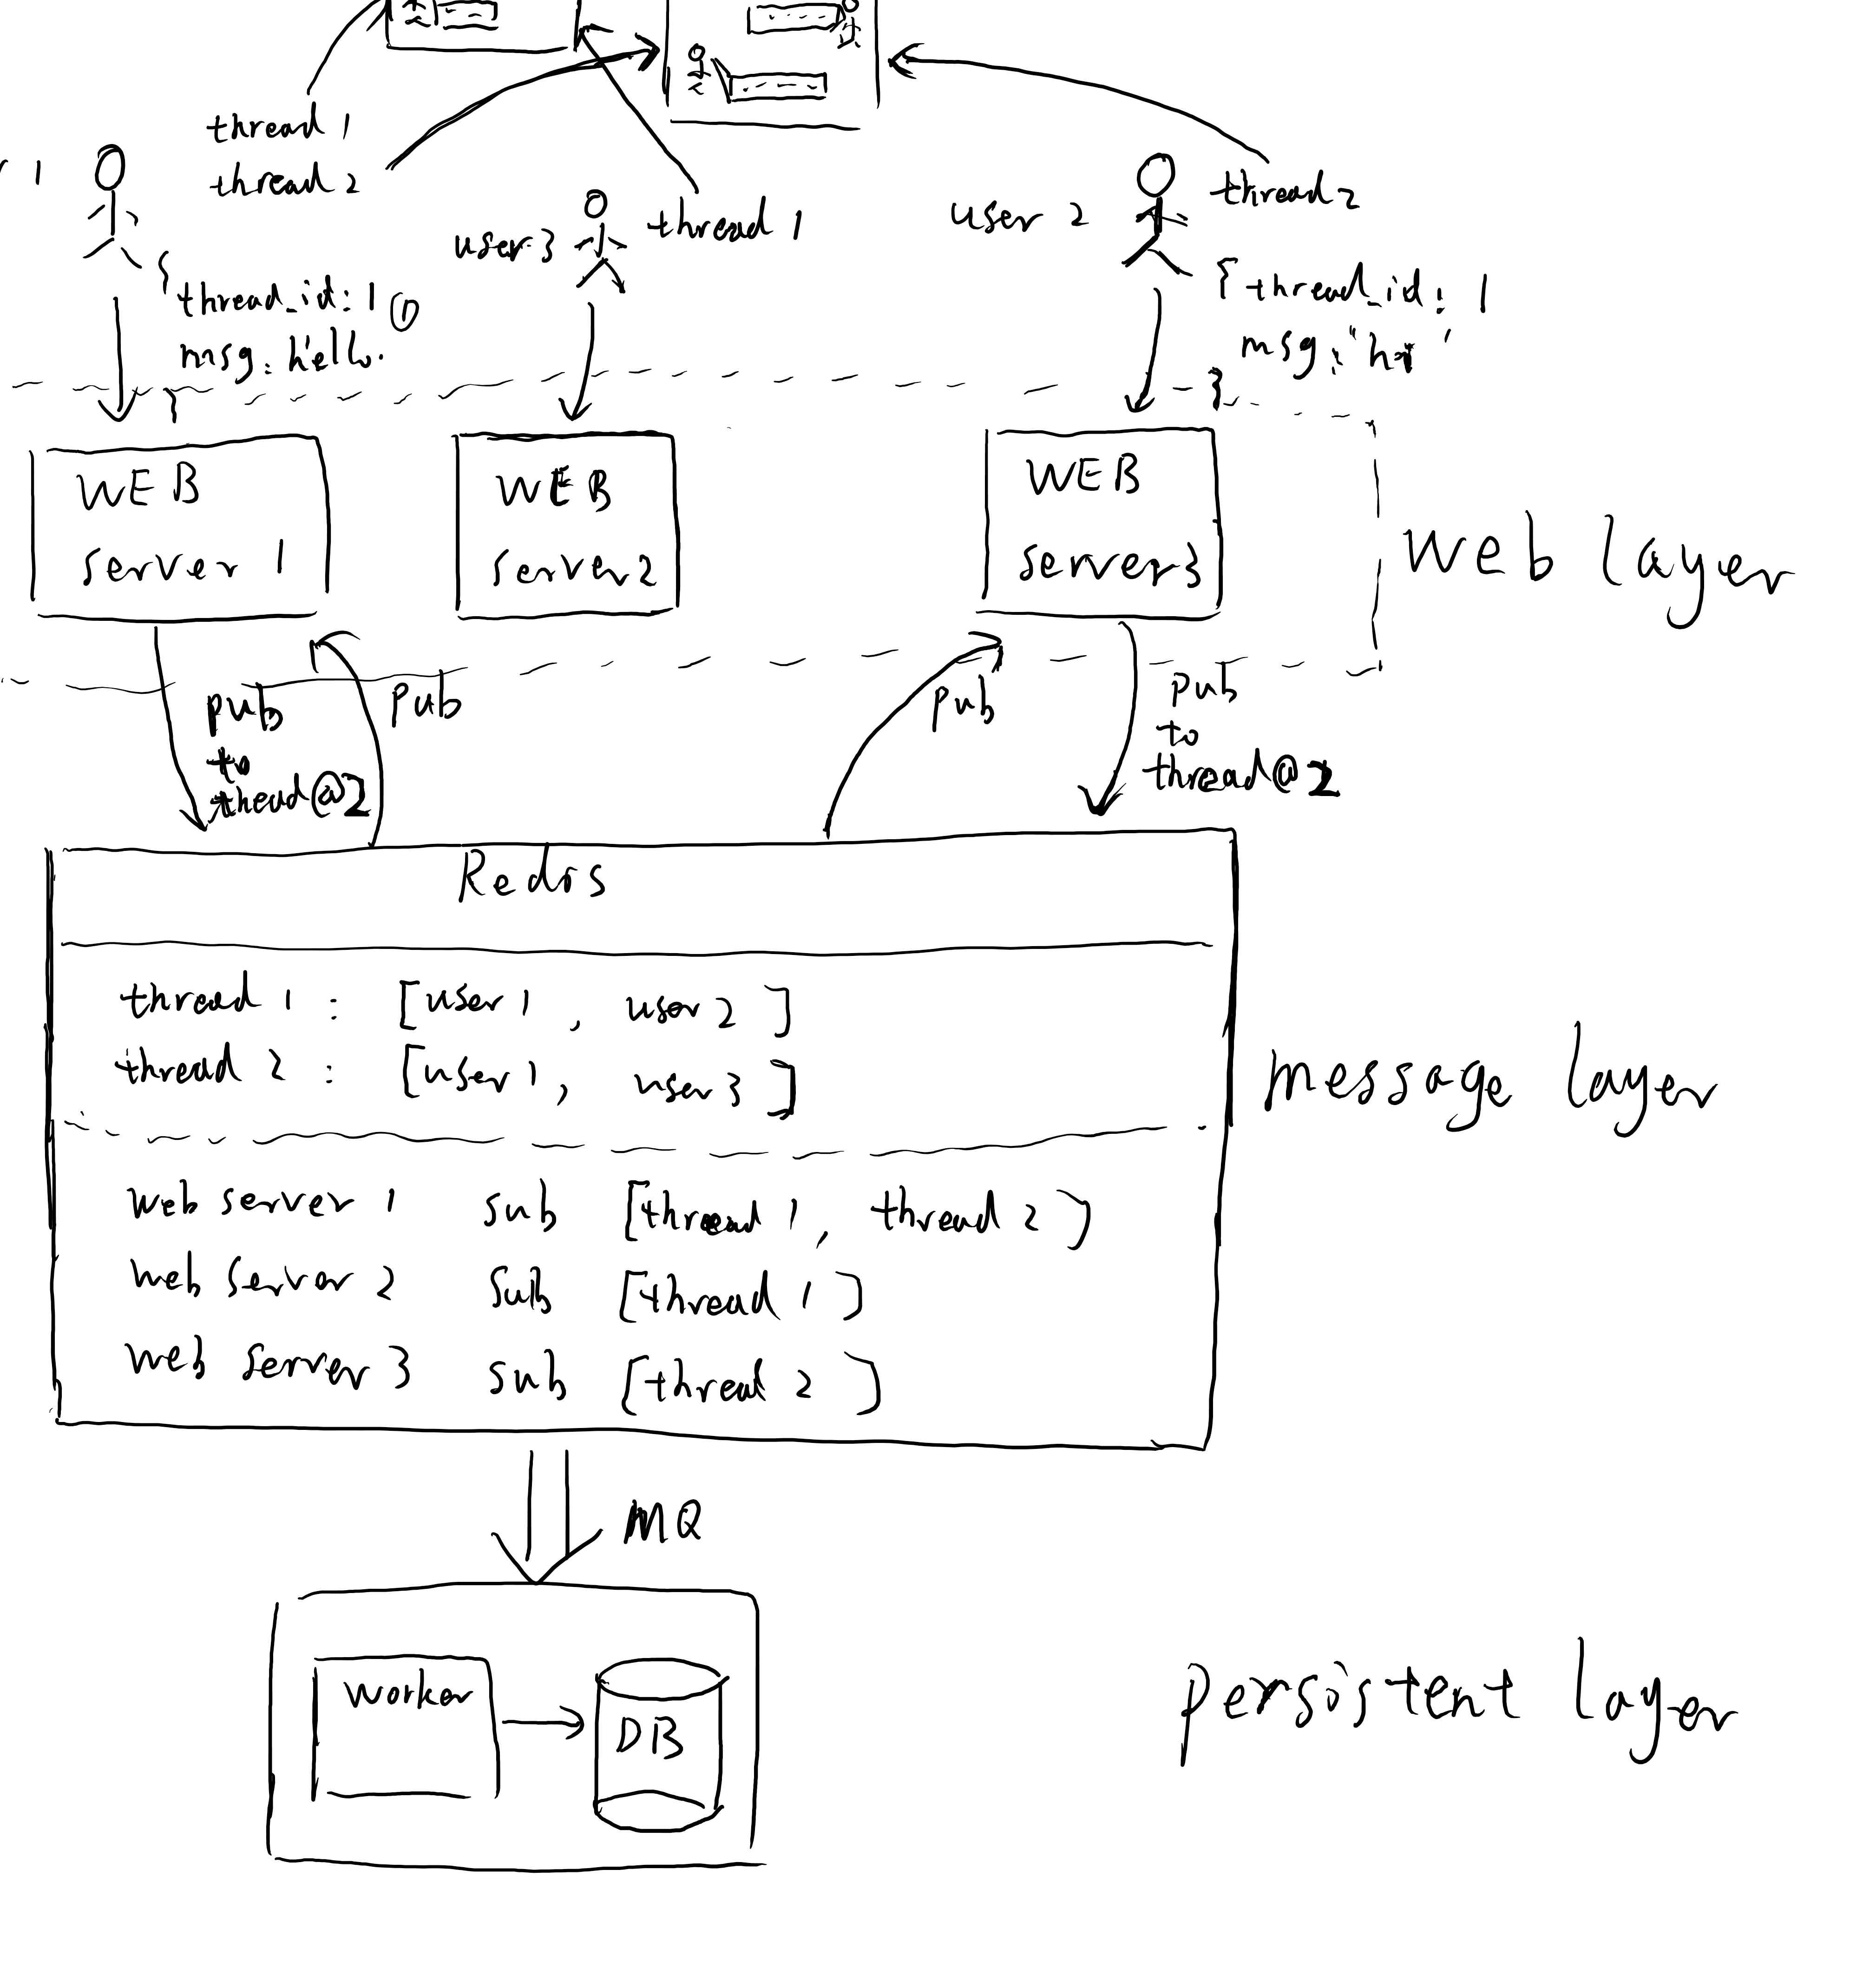 thread 1
thread 2
1
user 3
thread 1
user 2
thread 2
{
thread_id: 1 ①
msg: hello
}
{ thread_id: 1
msg: "hi"
}
WEB
server 1
WEB
server 2
WEB
server 3
Web layer
pub
to
thread@2
pub
pub
pub
to
thread@2
Redis
thread 1 : [user 1, user 2]
thread 2 : [user 1, user 3]
message layer
web server 1 sub [thread 1, thread 2]
web server 2 sub [thread 1]
web server 3 sub [thread 2]
MQ
worker
DB
persistent layer